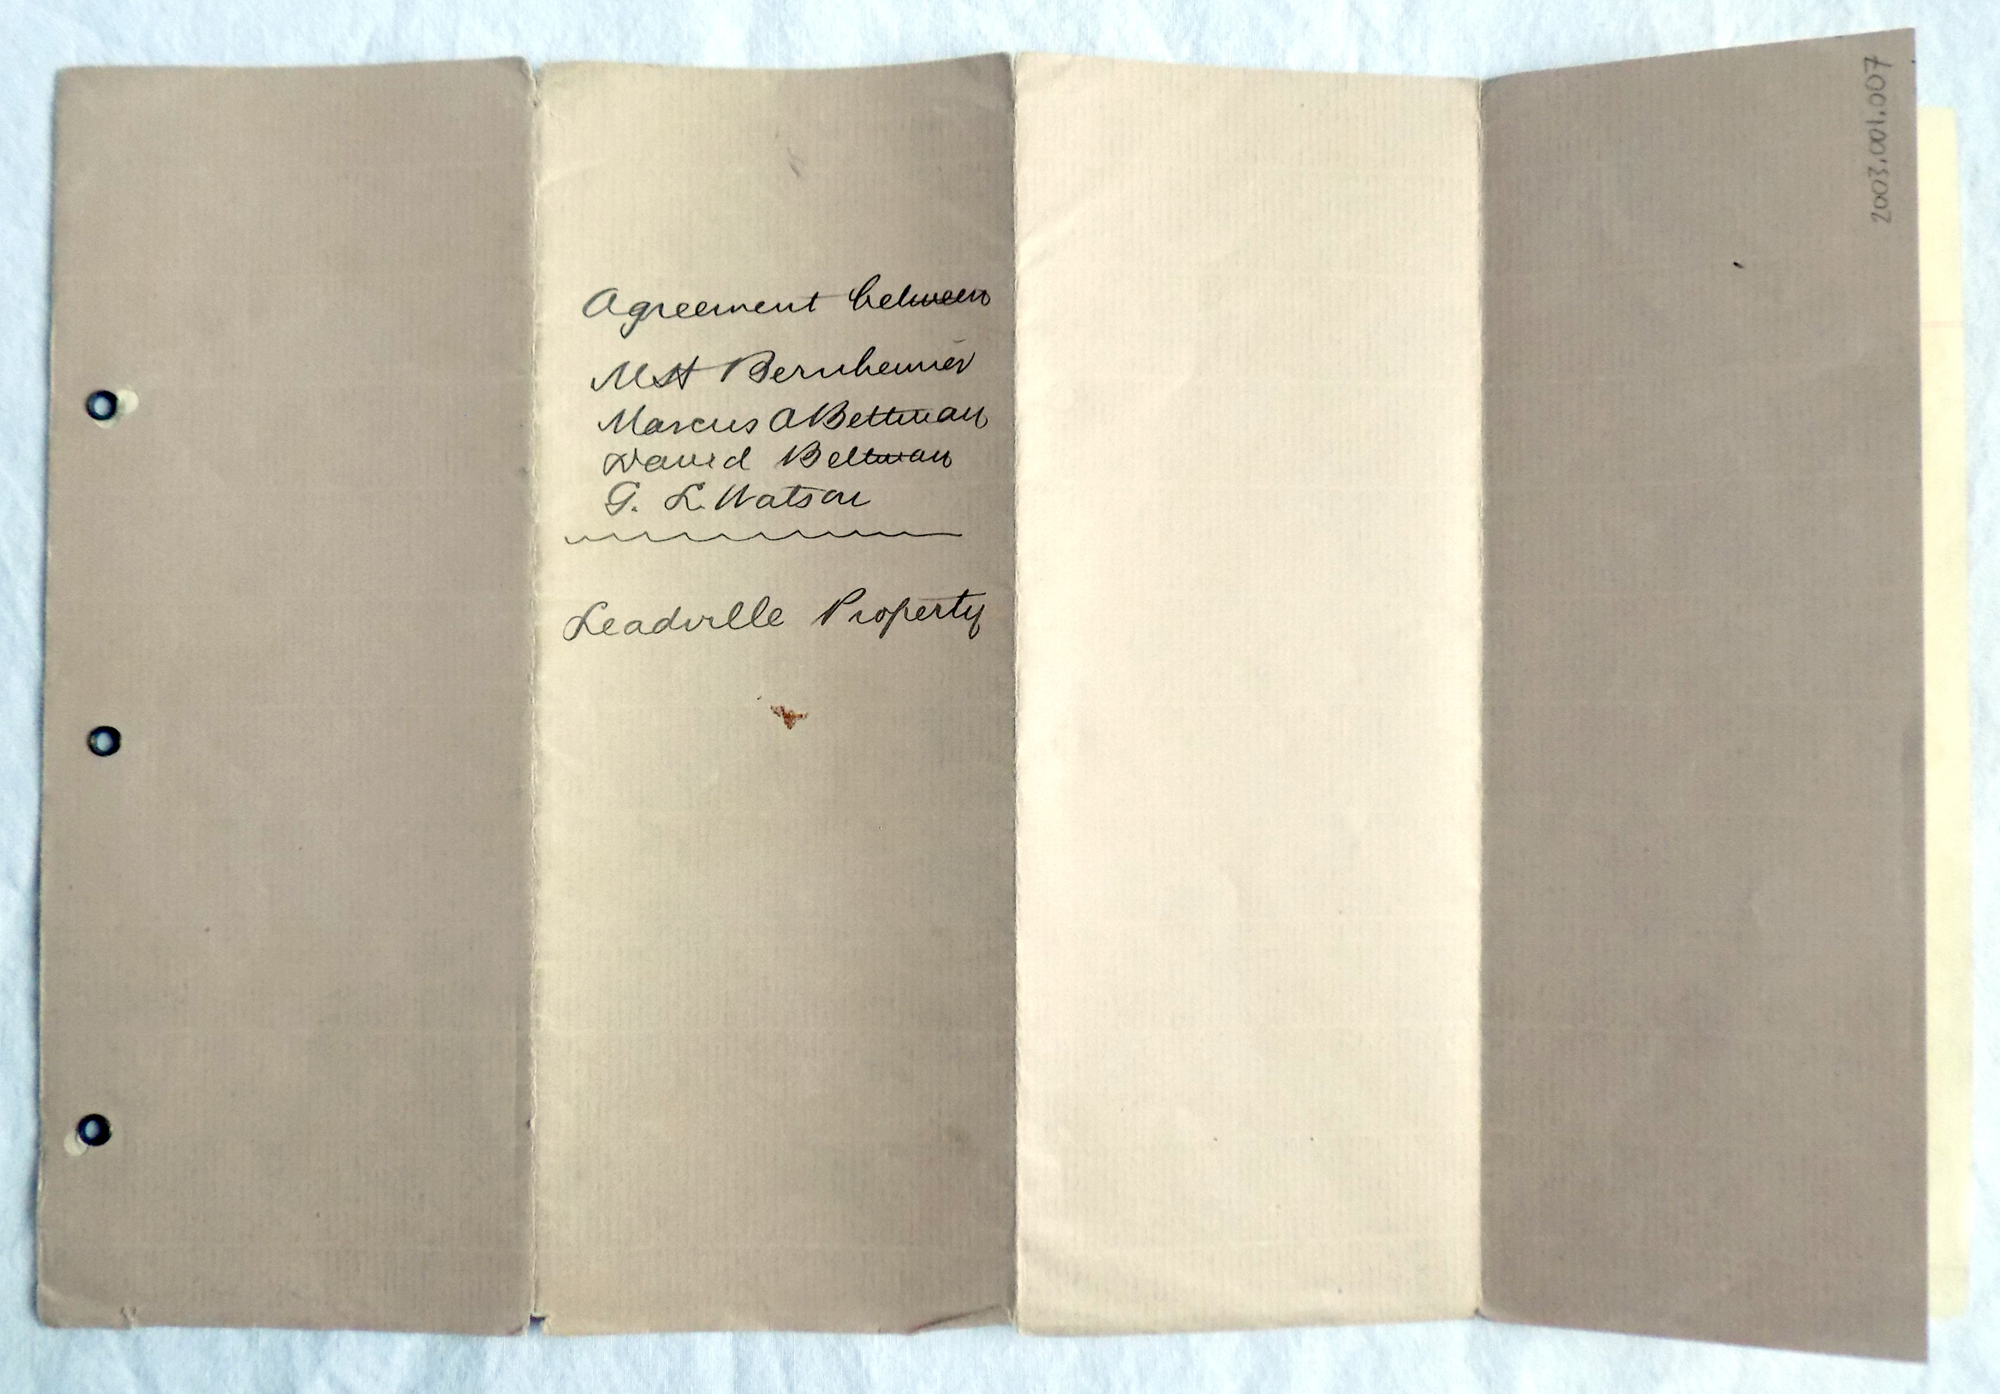 Agreement between
MH Bernheimer
Marcus A Bettman
David Bettman
G. L. Watson
Leadville Property
2003.001.007